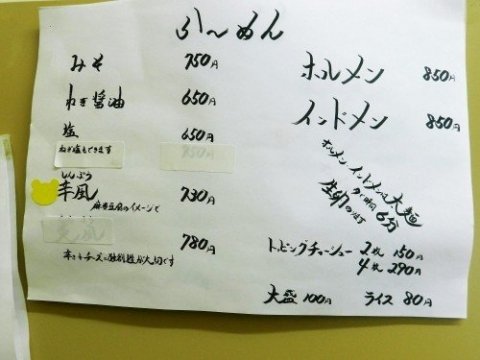 らーめん
みそ 750円
ねぎ醤油 650円
塩 650円
ねぎ塩もできます
しんぷう
辛風 730円
麻婆豆腐のイメージで
780円
ホルメン 850円
インドメン 850円
ホルメン・インドメンは大麺
ゆで時間6分
生卵の付
トッピングチャーシュー 2枚 150円
4枚 290円
大盛 100円 ライス 80円